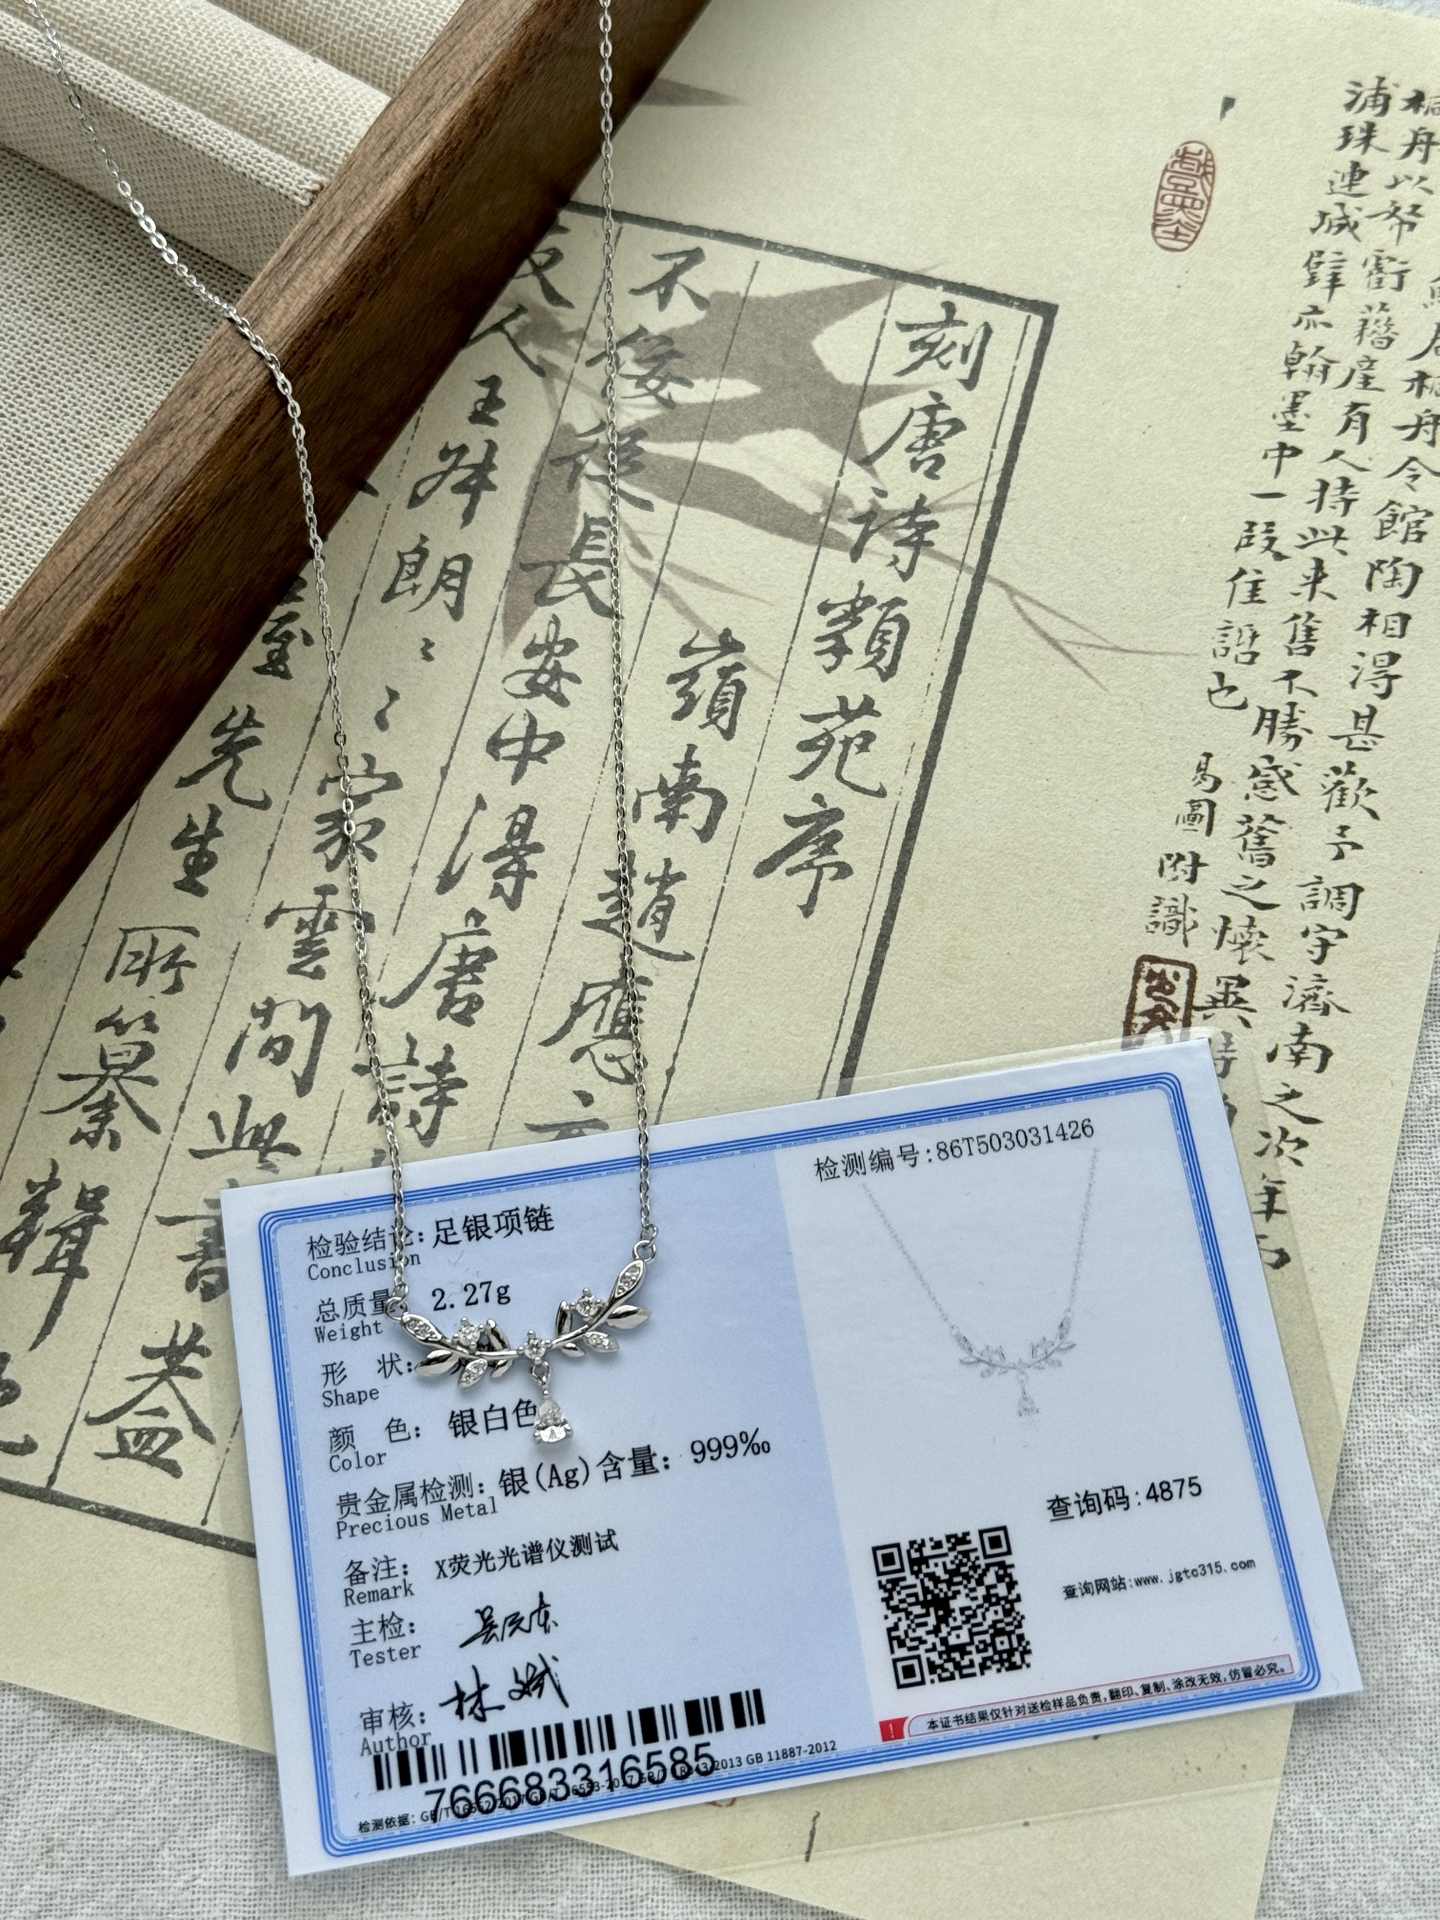 刻唐詩類苑序
嶺南趙應元
不佞從長安中得唐詩
友人王舜朗
家雲間此書
先生所纂輯蓋
桐舟令館陶相得甚歡予調守濟南之次年
桐舟以帑
有人持此来售不勝感舊之懷異時
浦珠連城璧亦翰墨中一段佳話也
易圖附識
检测编号:86T503031426
检验结论:足银项链
Conclusion
总质量 2.27g
Weight
形 状:
Shape
颜 色: 银白色
Color
贵金属检测: 银(Ag)含量: 999‰
Precious Metal
备注: X荧光光谱仪测试
Remark
主检:
Tester
审核: 林斌
Author
766683316585
检测依据: GB/T 16552-2017 GB/T 16553-2017 GB/T 18043-2013 GB 11887-2012
查询码:4875
查询网站:www.jgtc315.com
! 本证书结果仅针对送检样品负责,翻印、复制、涂改无效,仿冒必究。